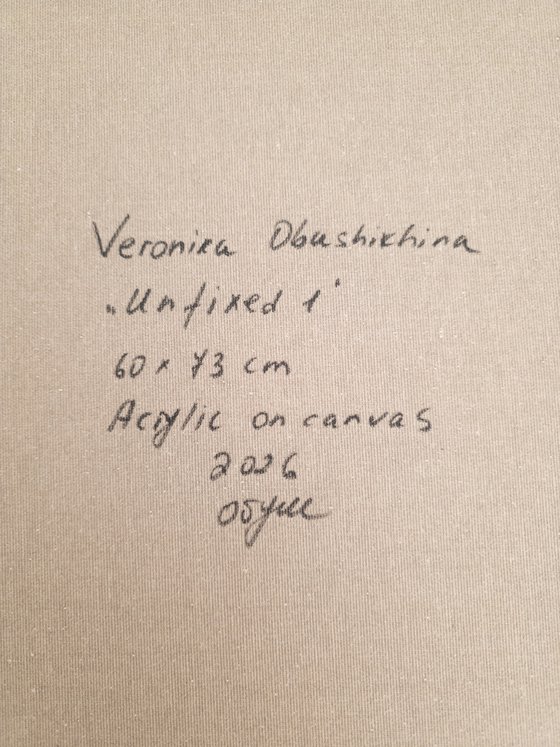 Veronika Obushikhina
„Unfixed 1"
60 x 73 cm
Acrylic on canvas
2026
Обуш